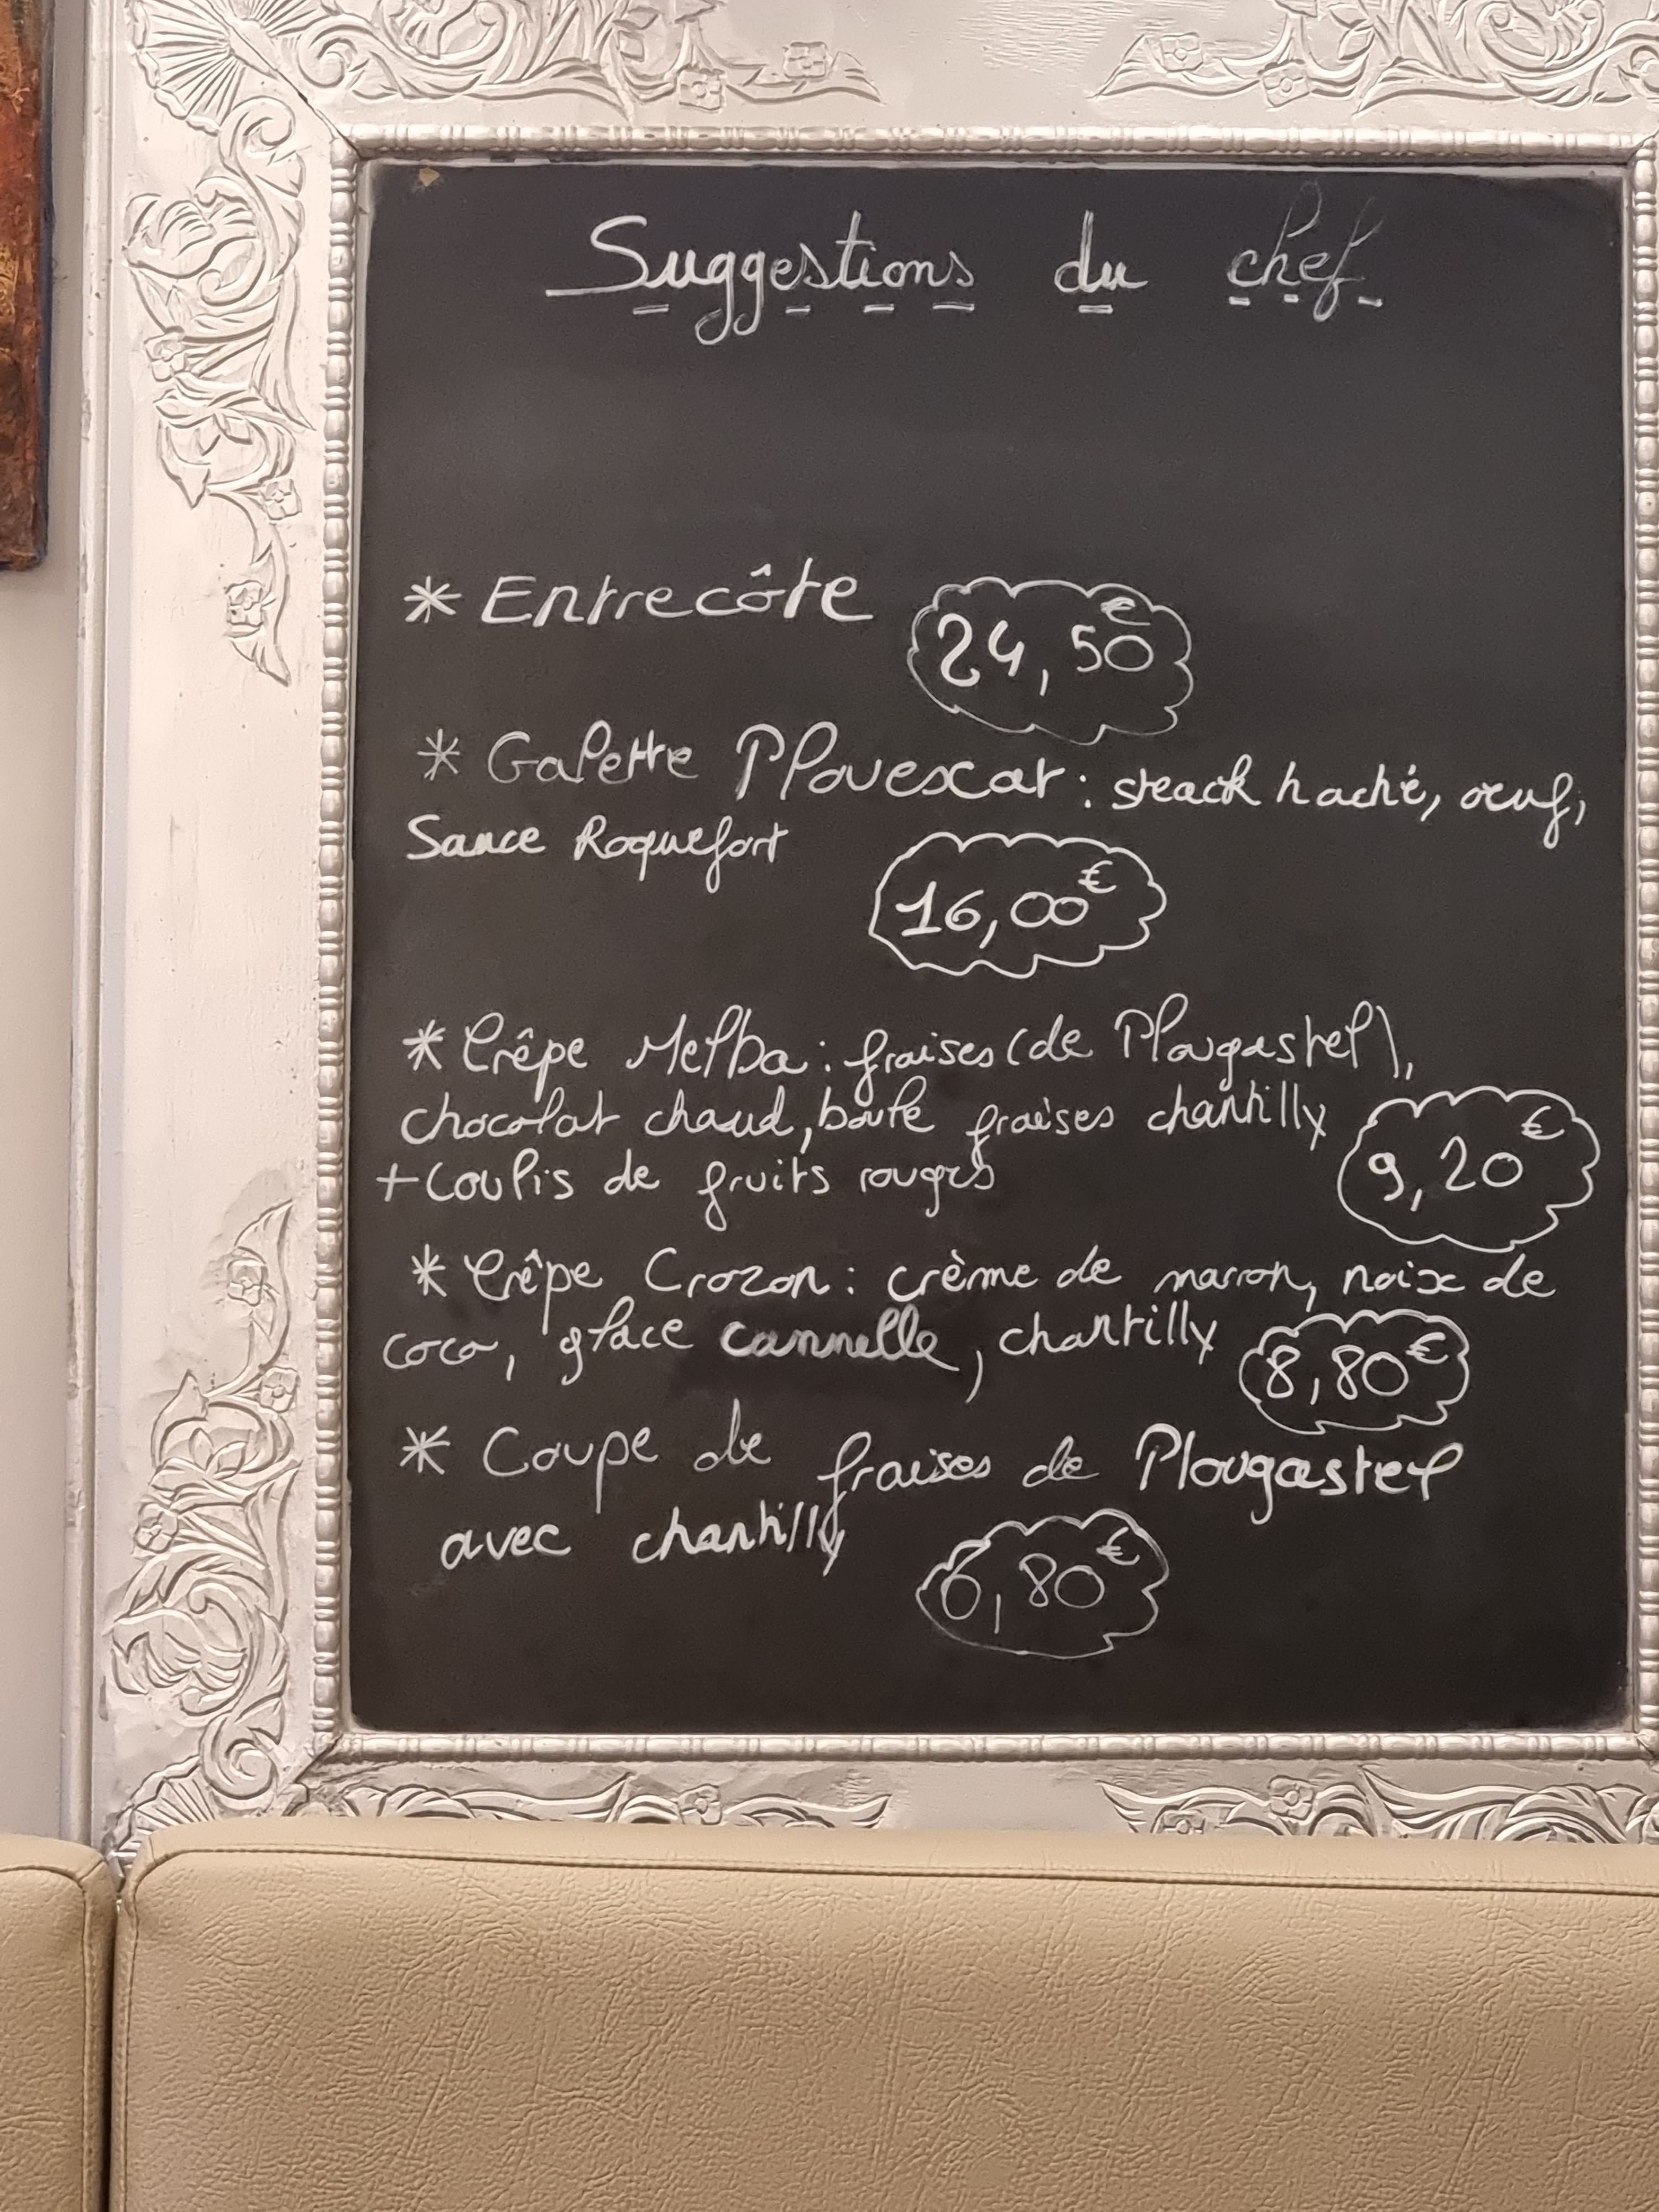 Suggestions du chef
* Entrecôte 24,50€
* Galette Plouescat : steack haché, oeuf,
Sauce Roquefort
16,00€
* Crêpe Melba : fraises (de Plougastel),
chocolat chaud, boule fraises chantilly
+ Coulis de fruits rouges 9,20€
* Crêpe Crozon : crème de marron, noix de
coco, glace cannelle, chantilly 8,80€
* Coupe de fraises de Plougastel
avec chantilly 6,80€